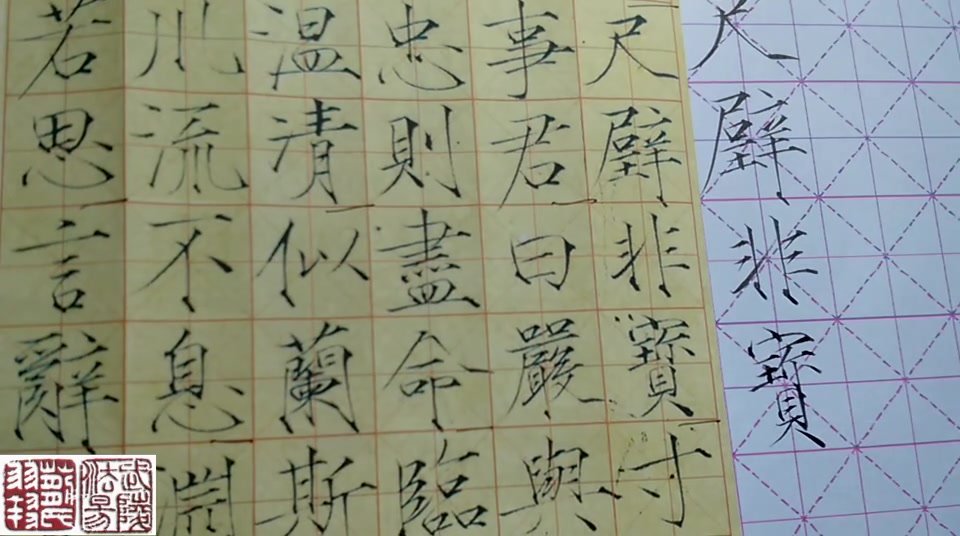 尺璧非寶
尺璧非寶寸
事君曰嚴與
忠則盡命臨
温清似蘭斯
川流不息淵
若思言辭